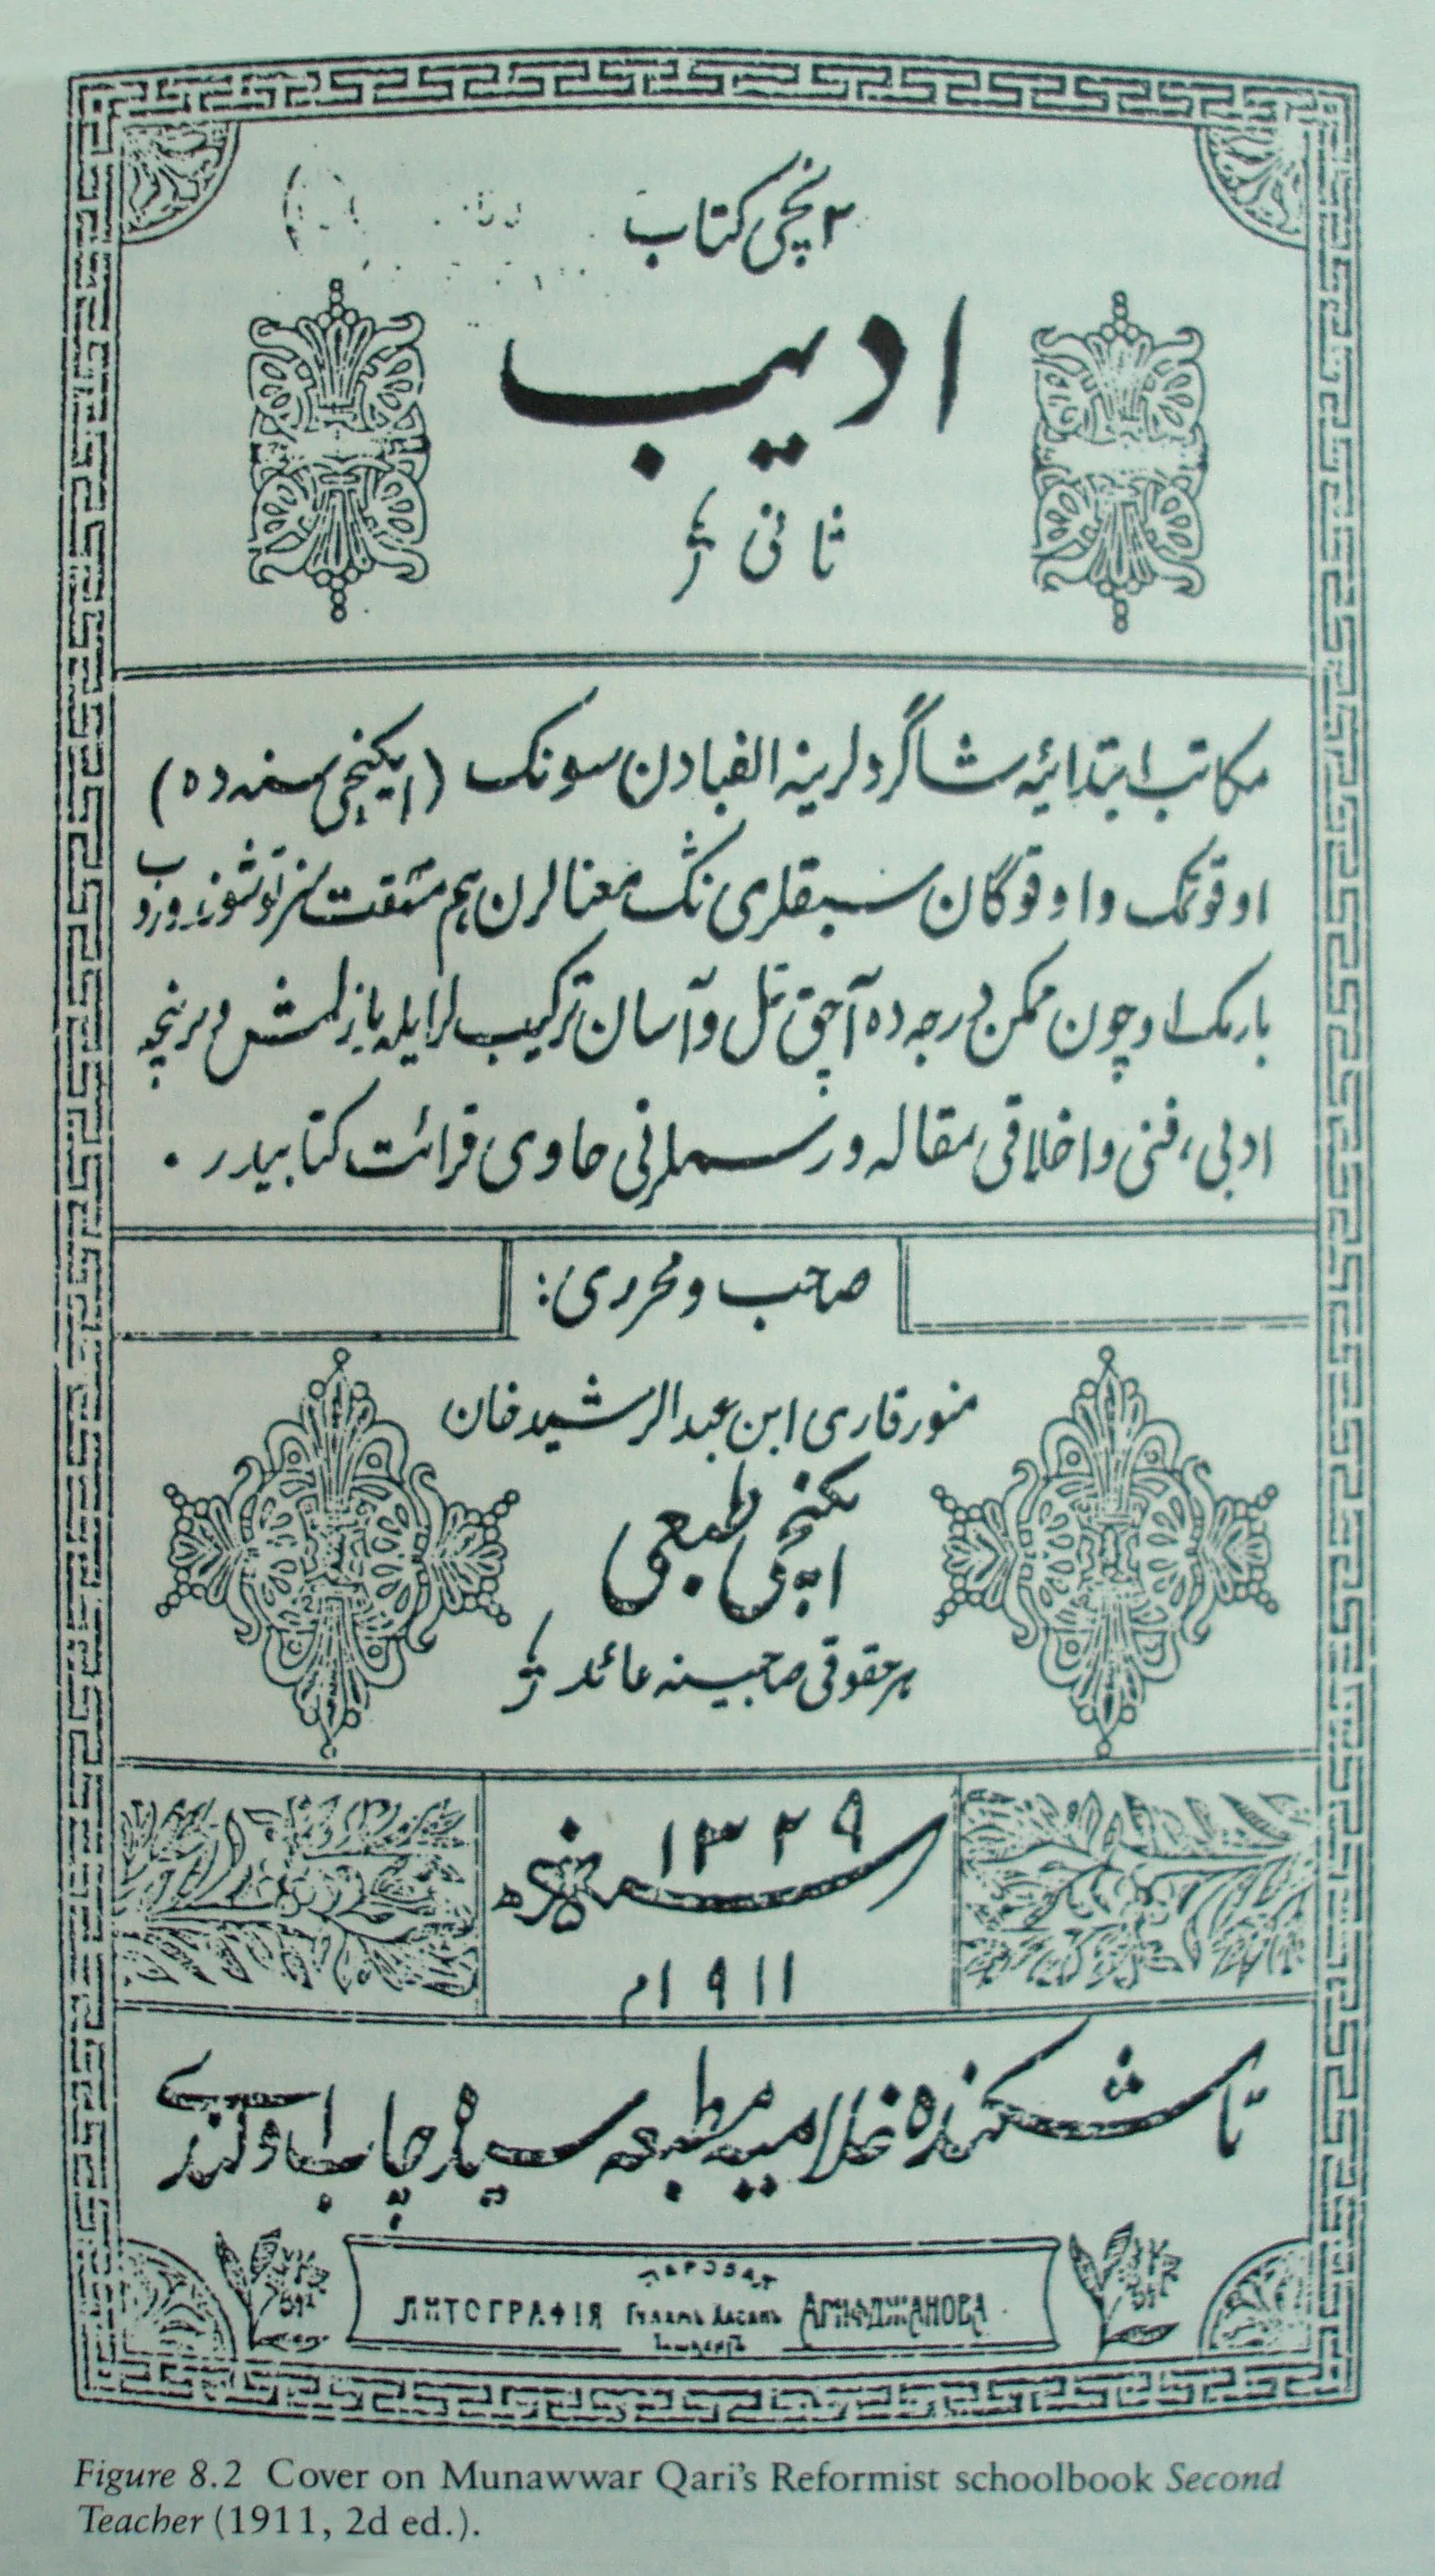 ۲ نچی کتاب
ادیب
ثانی
مکاتب ابتدائیه شاگردلرینه الفبادن سونک (ایکنچی سنه ده)
اوقوتمک و اوقوگان سبقلری نڭ معنالرن هم مشقت سز توشوندوروب
بارمک اوچون ممکن درجه ده آچق تل و آسان ترکیب لر ایله یازلمش بر نچه
ادبی، فنی و اخلاقی مقاله و رسملرنی حاوی قرائت کتابیدر .
صاحب و محرری:
منور قاری ابن عبدالرشید خان
ایکنچی طبعی
هر حقوقی صاحبینه عائد
۱۳۲۹ سنه هجریه
۱۹۱۱م
تاشکندده غلامیه مطبعه سیده چاپ اولندی
ЛИТОГРАФІЯ Гулямъ Хасанъ АРИФДЖАНОВА
Ташкентъ
Figure 8.2 Cover on Munawwar Qari's Reformist schoolbook Second
Teacher (1911, 2d ed.).